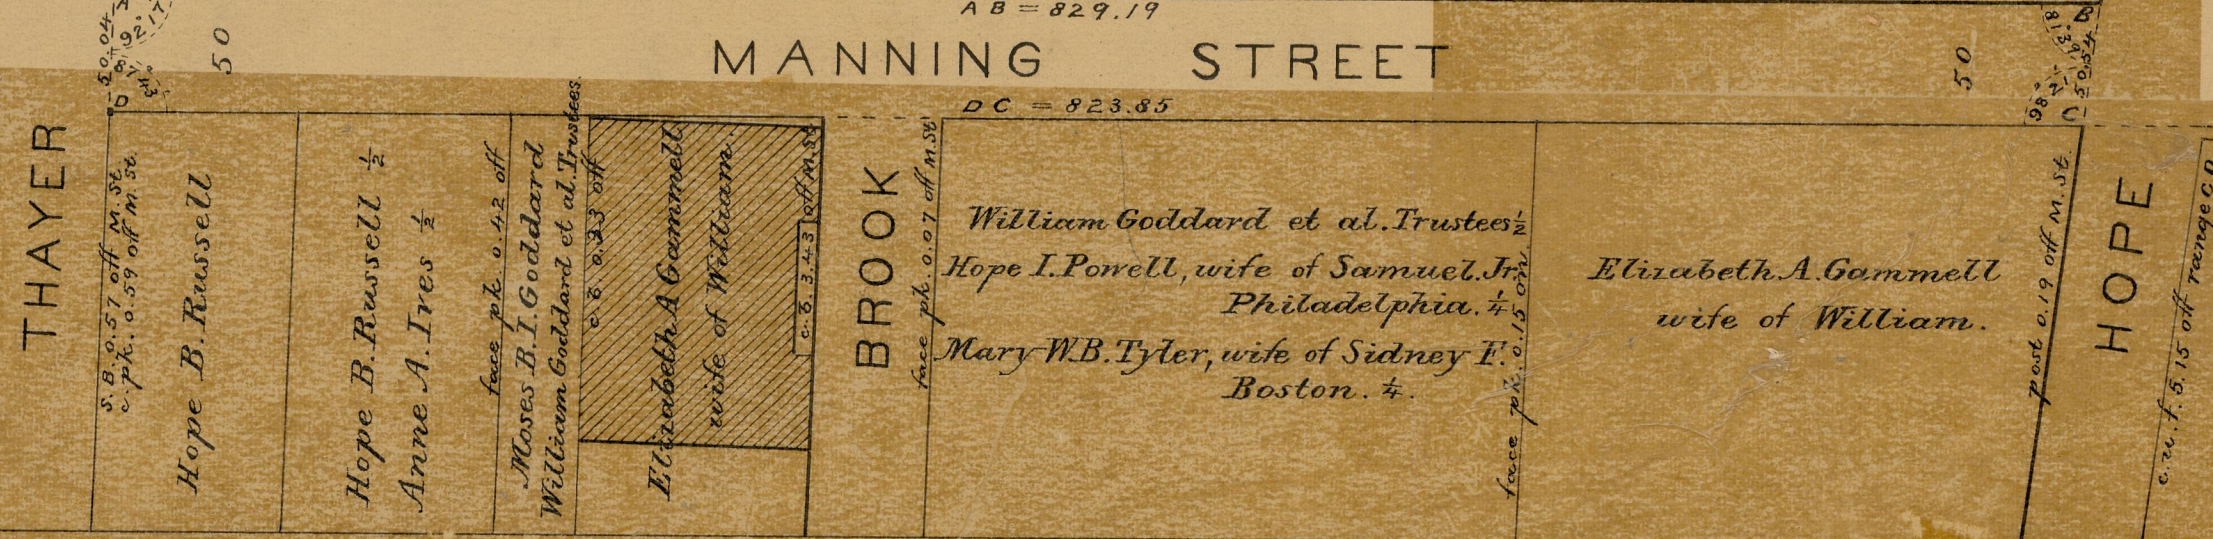 AB = 829.19
MANNING STREET
50
50
50.04
D
DC = 823.85
B
50.54
C
THAYER
S.B. 0.57 off M.St.
c.pk. 0.59 off M.St.
Hope B. Russell
Hope B. Russell ½
Anne A. Ives ½
face pk. 0.42 off
Moses B. I. Goddard
William Goddard et al. Trustees.
c.b. 0.33 off
Elizabeth A Gammell
wife of William.
c.b. 3.43 off M.St.
BROOK
face pk. 0.07 off M.St
William Goddard et al. Trustees ½
Hope I. Powell, wife of Samuel. Jr.
Philadelphia. ¼
Mary W.B. Tyler, wife of Sidney F.
Boston. ¼.
face pk. 0.15 on
Elizabeth A. Gammell
wife of William.
post 0.19 off M.St.
HOPE
c.w.f. 5.15 off range CD